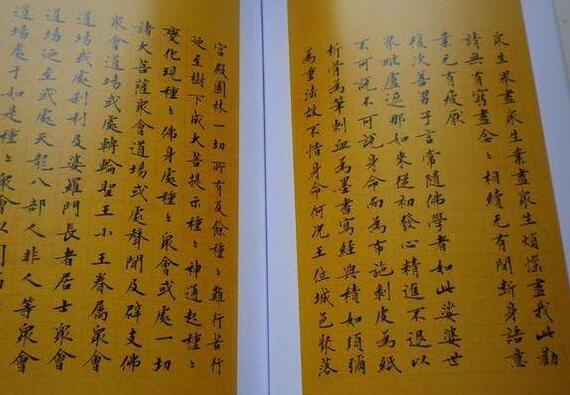 衆生界盡衆生業盡衆生煩惱盡我此勸
請無有窮盡念々相續无有間斷身語意
業无有疲厭
復次善男子言常隨佛學者如此娑婆世
界毗盧遮那如來從初發心精進不退以
不可說不可說身命而為布施剝皮為紙
析骨為筆刺血為墨書寫經典積如須彌
為重法故不惜身命何況王位城邑聚落
宮殿園林一切所有及餘種々難行苦行
廼至樹下成大菩提示種々神通起種々
變化現種々佛身處種々衆會或處一切
諸大菩薩衆會道場或處聲聞及辟支佛
衆會道場或處轉輪聖王小王眷屬衆會
道場或處刹利及婆羅門長者居士衆會
道場廼至或處天龍八部人非人等衆會
道場處于如是種々衆會以圓